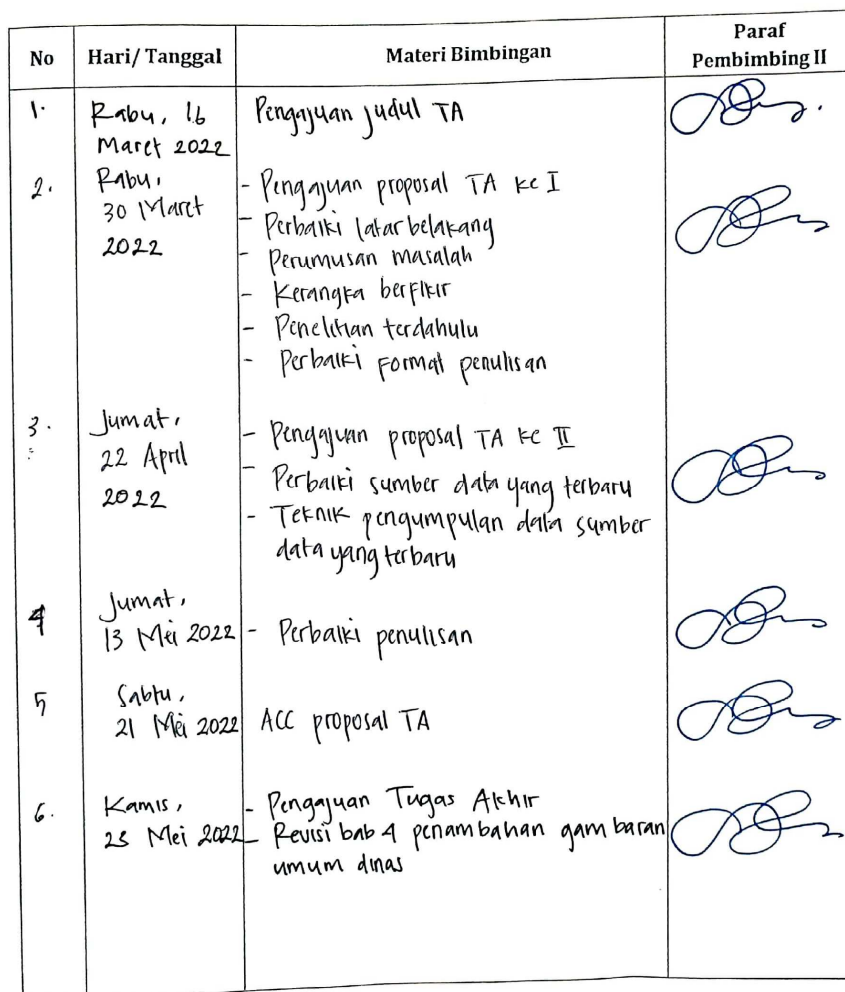 No Hari/ Tanggal Materi Bimbingan Paraf
Pembimbing II
1. Rabu, 16 Pengajuan judul TA
Maret 2022
2. Rabu, - Pengajuan proposal TA ke I
30 Maret - Perbaiki latar belakang
2022 - Perumusan masalah
- Kerangka berfikir
- Penelitian terdahulu
- Perbaiki format penulisan
3. Jumat, - Pengajuan proposal TA ke II
22 April - Perbaiki sumber data yang terbaru
2022 - Teknik pengumpulan data sumber
data yang terbaru
4 Jumat,
13 Mei 2022 - Perbaiki penulisan
5 Sabtu,
21 Mei 2022 ACC proposal TA
6. Kamis, - Pengajuan Tugas Akhir
Mei 2022 - Revisi bab 4 penambahan gambaran
umum dinas